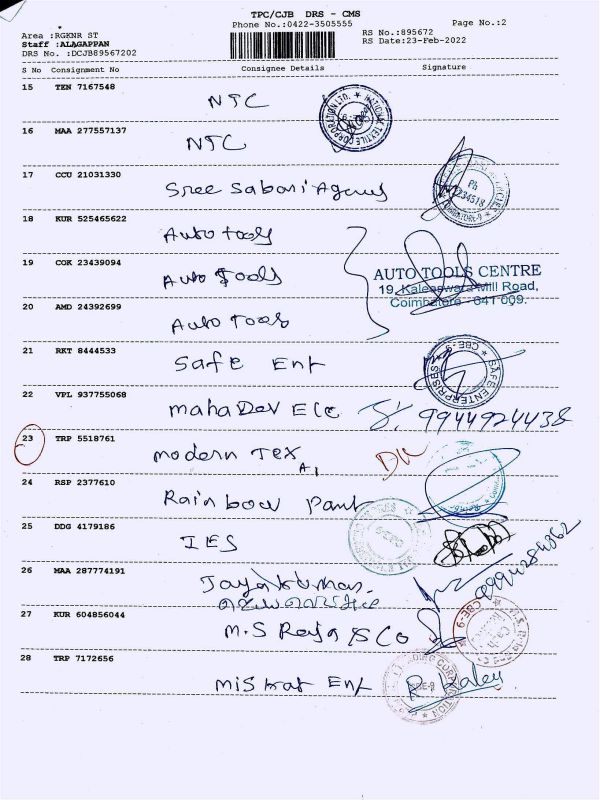 TPC/CJB DRS - CMS
Phone No.:0422-3505555
Page No.:2
Area :RGKNR ST
RS No.:895672
Staff :ALAGAPPAN
RS Date:23-Feb-2022
DRS No. :DCJB89567202
S No Consignment No Consignee Details Signature
15 TEN 7167548 NTC
NATIONAL TEXTILE CORPORATION LTD.
16 MAA 277557137 NTC
17 CCU 21031330 Sree Sabari Agency
Ph
COIMBATORE-9
18 KUR 525465622 Auto tools
19 COK 23439094 Auto Tools
AUTO TOOLS CENTRE
19, Kaleeswara Mill Road,
Coimbatore - 641 009.
20 AMD 24392699 Auto Tools
21 RKT 8444533 Safe Ent
SAFE ENTERPRISES CBE-9
22 VPL 937755068 mahaDev Ele 9944924438
23 TRP 5518761 modern Tex
24 RSP 2377610 Rainbow Paint
25 DDG 4179186 IES
26 MAA 287774191 Jayakumar
27 KUR 604856044 M.S Raja & Co
CBE-9
28 TRP 7172656 Ent